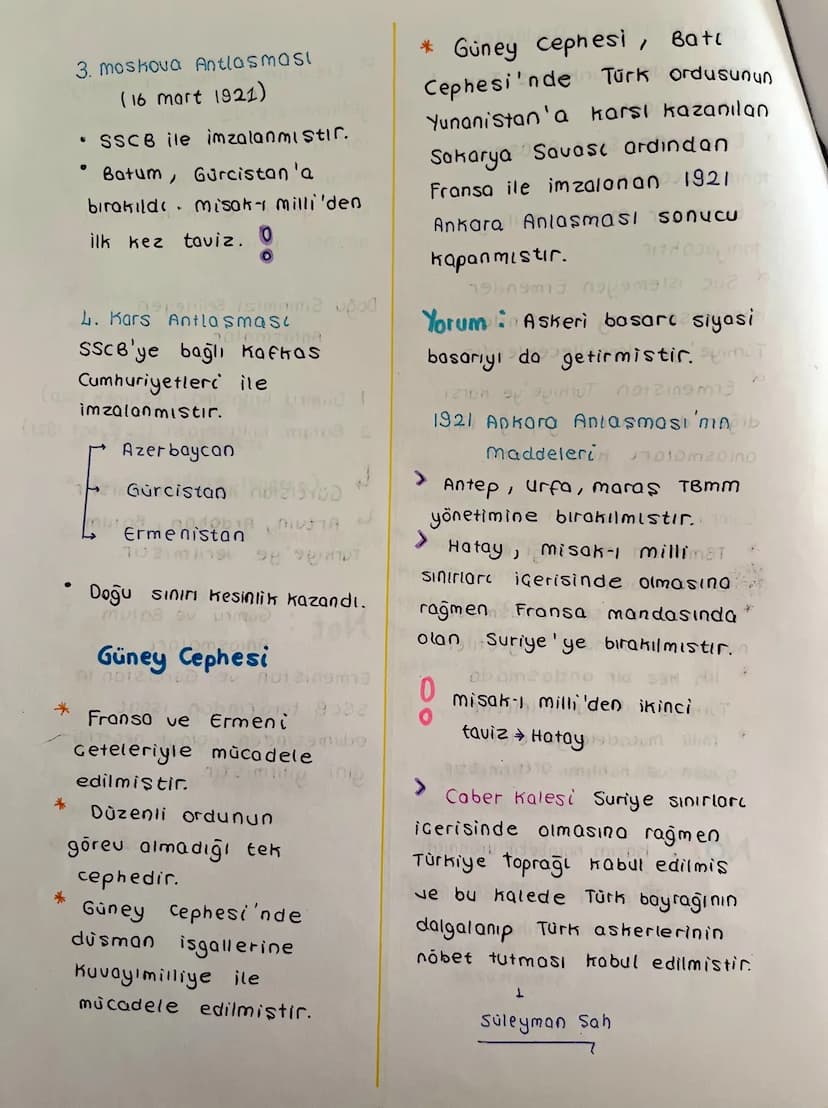 3. Moskova Antlaşması
(16 Mart 1921)
• SSCB ile imzalanmıştır.
• Batum, Gürcistan'a
bırakıldı. Misak-ı Milli'den
ilk kez taviz.
4. Kars Antlaşması
SSCB'ye bağlı Kafkas
Cumhuriyetleri ile
imzalanmıştır.
Azerbaycan
Gürcistan
Ermenistan
• Doğu sınırı kesinlik kazandı.
Güney Cephesi
* Fransa ve Ermeni
çeteleriyle mücadele
edilmiştir.
* Düzenli ordunun
görev almadığı tek
cephedir.
* Güney Cephesi'nde
düşman işgallerine
Kuvayımilliye ile
mücadele edilmiştir.
* Güney Cephesi, Batı
Cephesi'nde Türk ordusunun
Yunanistan'a karşı kazanılan
Sakarya Savaşı ardından
Fransa ile imzalanan 1921
Ankara Anlaşması sonucu
kapanmıştır.
Yorum: Askeri başarı siyasi
başarıyı da getirmiştir.
1921 Ankara Anlaşması'nın
Maddeleri
> Antep, Urfa, Maraş TBMM
yönetimine bırakılmıştır.
> Hatay, Misak-ı Milli
sınırları içerisinde olmasına
rağmen Fransa mandasında
olan Suriye'ye bırakılmıştır.
Misak-ı Milli'den ikinci
taviz → Hatay
> Caber Kalesi Suriye sınırları
içerisinde olmasına rağmen
Türkiye toprağı kabul edilmiş
ve bu kalede Türk bayrağının
dalgalanıp Türk askerlerinin
nöbet tutması kabul edilmiştir.
↓
Süleyman Şah